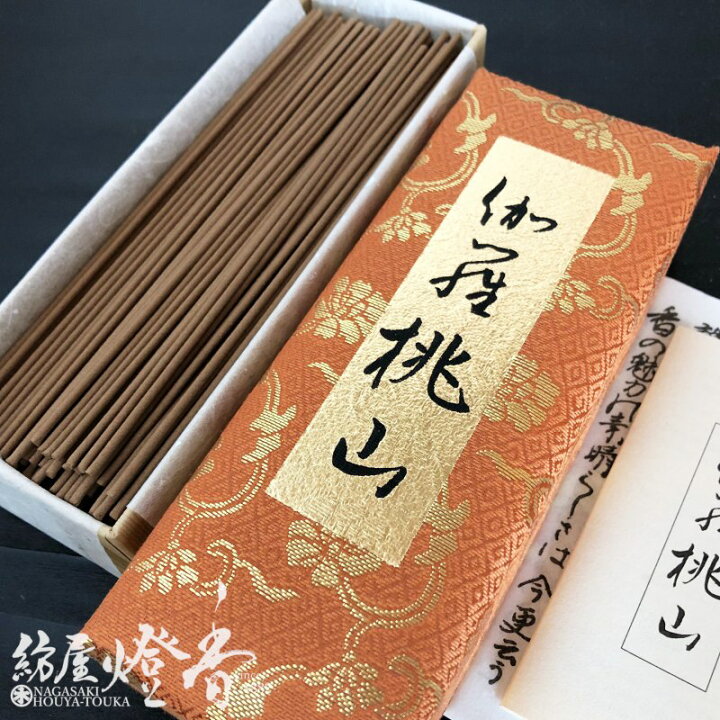 伽羅桃山
香の魅力の素晴らしさは今更云う
羅桃山
紡屋燈香
NAGASAKI
HOUYA-TOUKA